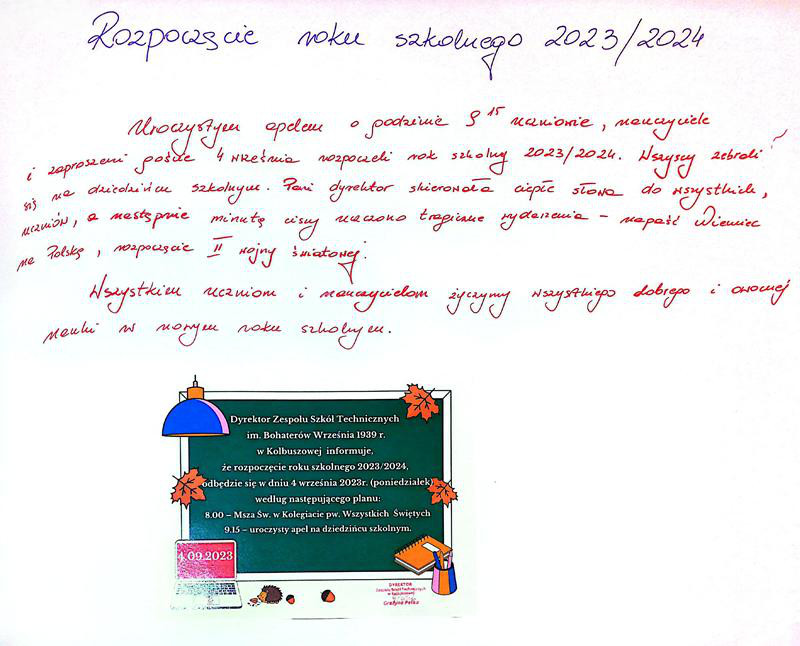 Rozpoczęcie roku szkolnego 2023/2024
Uroczystym apelem o godzinie 9 15 uczniowie, nauczyciele
i zaproszeni goście 4 września rozpoczęli rok szkolny 2023/2024. Wszyscy zebrali
się na dziedzińcu szkolnym. Pani dyrektor skierowała ciepłe słowa do wszystkich,
uczniów, a następnie minutą ciszy uczczono tragiczne wydarzenia – napaść Niemiec
na Polskę, rozpoczęcie II wojny światowej.
Wszystkim uczniom i nauczycielom życzymy wszystkiego dobrego i owocnej
nauki w nowym roku szkolnym.
Dyrektor Zespołu Szkół Technicznych
im. Bohaterów Września 1939 r.
w Kolbuszowej informuje,
że rozpoczęcie roku szkolnego 2023/2024,
odbędzie się w dniu 4 września 2023r. (poniedziałek)
według następującego planu:
8.00 – Msza Św. w Kolegiacie pw. Wszystkich Świętych
9.15 – uroczysty apel na dziedzińcu szkolnym.
4.09.2023
DYREKTOR
Zespołu Szkół Technicznych
w Kolbuszowej
Grażyna Pełka